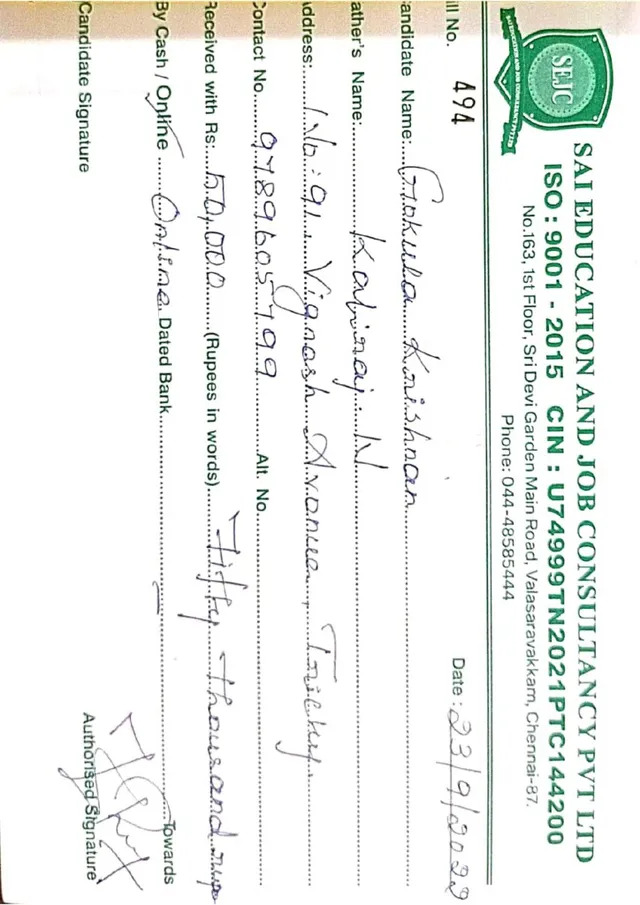 SEJC
SAI EDUCATION AND JOB CONSULTANCY PVT LTD
ISO : 9001 - 2015 CIN : U74999TN2021PTC144200
No.163, 1st Floor, Sri Devi Garden Main Road, Valasaravakkam, Chennai-87.
Phone: 044-48585444
ill No. 494 Date: 23/9/2022
andidate Name: Gokula Krishnan
ather's Name: Kabiraj. N
ddress: No: 91, Vignesh Avenue, Trichy.
Contact No. 9789605799 Alt. No.
Received with Rs: 50,000 (Rupees in words) Fifty thousand rupe
By Cash / Online Online Dated Bank Towards
Candidate Signature Authorised Signature